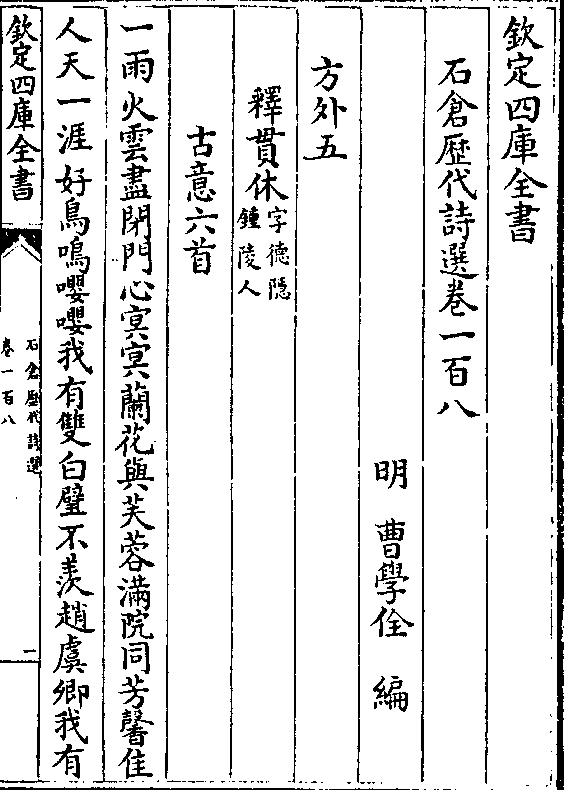 欽定四庫全書
石倉歴代詩選卷一百八
明 曹學佺 編
方外五
釋貫休 字德隱
鍾陵人
古意六首
一雨火雲盡閉門心㝠㝠蘭花與芙蓉滿院同芳馨佳
人天一涯好鳥鳴嚶嚶我有雙白璧不羨趙虞卿我有
欽定四庫全書
石倉歴代詩選
卷一百八
一